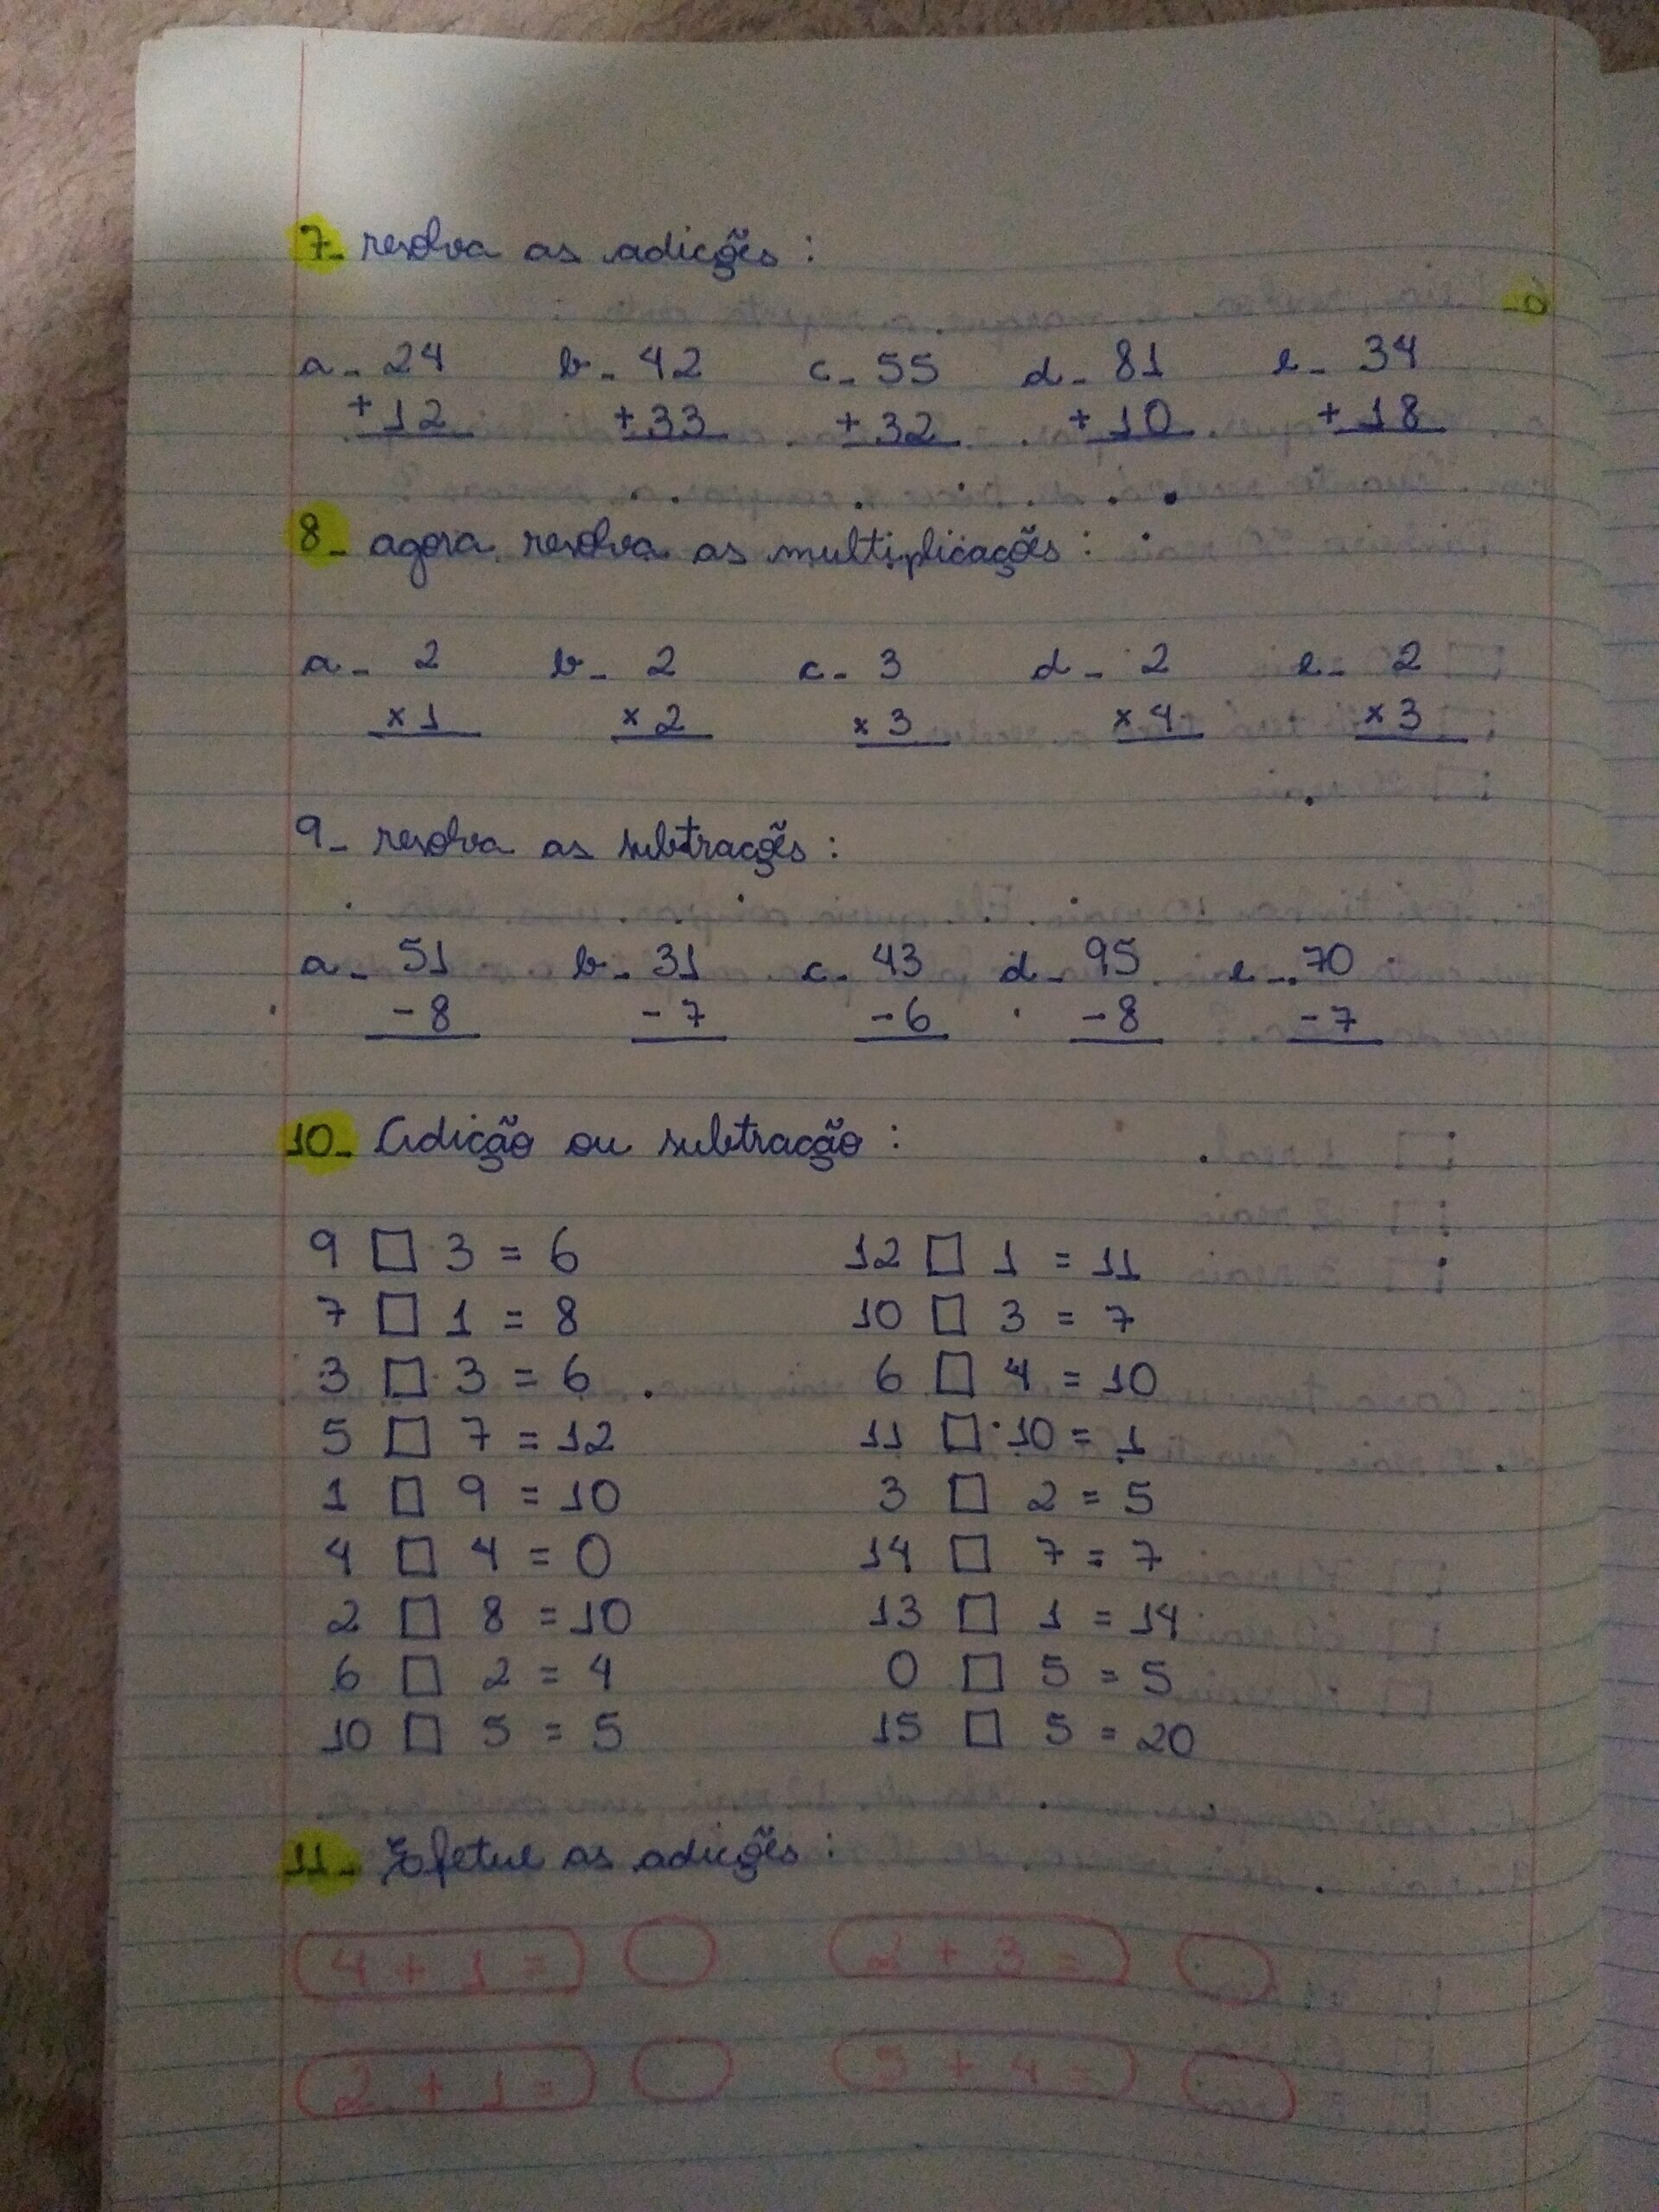 7- resolva as adições:
a- 24 b- 42 c- 55 d- 81 e- 34
+12 +33 +32 +10 +18
8- agora resolva as multiplicações:
a- 2 b- 2 c- 3 d- 2 e- 2
x1 x2 x3 x4 x3
9- resolva as subtrações:
a- 51 b- 31 c- 43 d- 95 e- 70
-8 -7 -6 -8 -7
10- Adição ou subtração:
9 □ 3 = 6 12 □ 1 = 11
7 □ 1 = 8 10 □ 3 = 7
3 □ 3 = 6 6 □ 4 = 10
5 □ 7 = 12 11 □ 10 = 1
1 □ 9 = 10 3 □ 2 = 5
4 □ 4 = 0 14 □ 7 = 7
2 □ 8 = 10 13 □ 1 = 14
6 □ 2 = 4 0 □ 5 = 5
10 □ 5 = 5 15 □ 5 = 20
11- Efetue as adições:
4 + 1 = 2 + 3 =
2 + 1 = 5 + 4 =